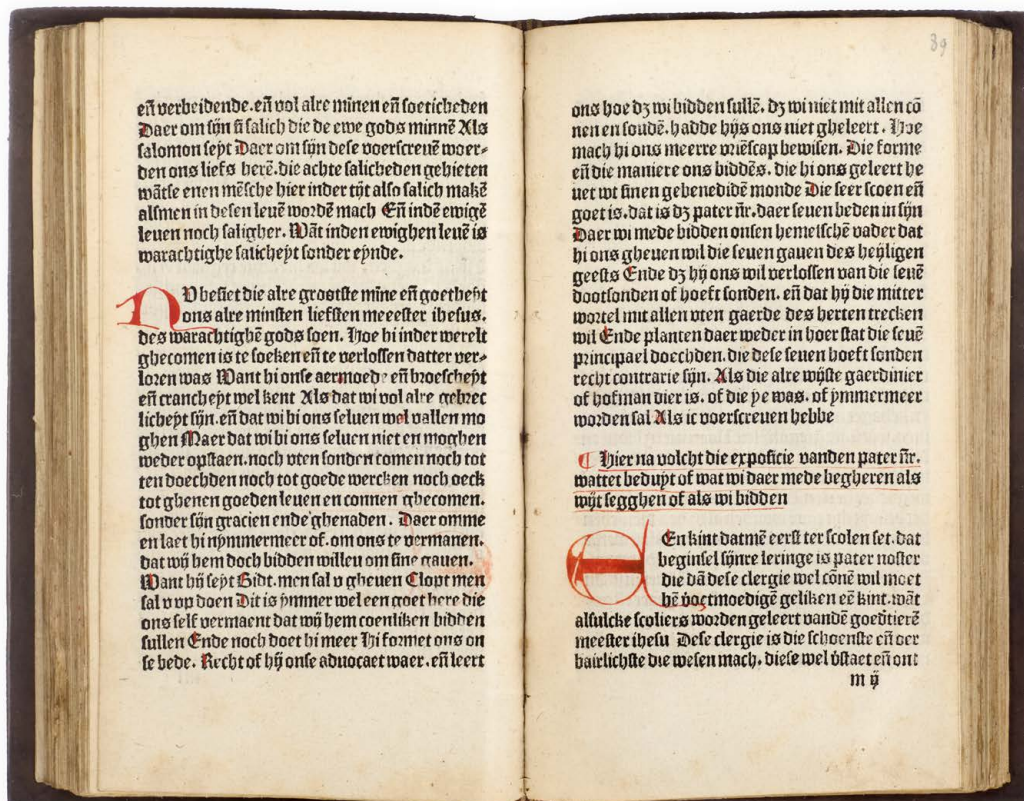 en̄ verbeidende. en̄ vol alre minen en̄ soeticheden
Daer om sijn si salich die de ewe gods minnē Als
salomon seyt Daer om sijn dese voerscreuē woer-
den ons liefs herē. die achte salicheden gebieten
wātse enen mēsche hier inder tijt also salich makē
alsmen in desen leuē wordē mach En̄ indē ewigē
leuen noch saligher. Wāt inden ewighen leuē is
warachtighe salicheyt sonder eynde.
NV besiet die alre grootste mīne en̄ goetheyt
ons alre minsten liefsten meeester ihesus.
des warachtighē gods soen. Hoe hi inder werelt
ghecomen is te soeken en̄ te verlossen datter ver-
loren was Want hi onse aermoede en̄ broescheyt
en̄ crancheyt wel kent Als dat wi vol alre gebrec
licheyt sijn. en̄ dat wi bi ons seluen wel vallen mo
ghen Maer dat wi bi ons seluen niet en moghen
weder opstaen. noch vten sonden comen noch tot
ten doechden noch tot goede wercken noch oeck
tot ghenen goeden leuen en connen ghecomen.
sonder sijn gracien ende ghenaden. Daer omme
en laet hi nymmermeer of. om ons te vermanen.
dat wij hem doch bidden willen om sine gauen.
Want hij seyt Bidt. men sal v gheuen Clopt men
sal v vp doen Dit is ymmer wel een goet here die
ons self vermaent dat wij hem coenliken bidden
sullen Ende noch doet hi meer Hi formet ons on
se bede. Recht of hij onse aduocaet waer. en̄ leert
89
ons hoe dʒ wi bidden sullē. dʒ wi niet mit allen cō
nen en soudē. hadde hijs ons niet gheleert. Hoe
mach hi ons meerre vriēscap bewisen. Die forme
en̄ die maniere ons biddēs. die hi ons geleert he
uet wt sinen gebenedidē monde Die seer scoen en̄
goet is. dat is dʒ pater n̄r. daer seuen beden in sijn
Daer wi mede bidden onsen hemelschē vader dat
hi ons gheuen wil die seuen gauen des heyligen
geests Ende dʒ hij ons wil verlossen van die seuē
dootsonden of hoeft sonden. en̄ dat hij die mitter
wortel mit allen vten gaerde des herten trecken
wil Ende planten daer weder in hoer stat die seuē
principael doechden. die dese seuen hoeft sonden
recht contrarie sijn. Als die alre wijste gaerdinier
of hofman dier is. of die ye was. of ymmermeer
worden sal Als ic voerscreuen hebbe
¶ Hier na volcht die expositie vanden pater n̄r.
wattet beduyt of wat wi daer mede begheren als
wijt segghen of als wi bidden
EEn kint datmē eerst ter scolen set. dat
beginsel sijnre leringe is pater noster
die dā dese clergie wel cōnē wil moet
hē voetmoedigē geliken eē kint. wāt
alsulcke scoliers worden geleert vandē goedtierē
meester ihesu Dese clergie is die schoenste en̄ oer
bairlichste die wesen mach. diese wel v̄staet en̄ ont
m ij